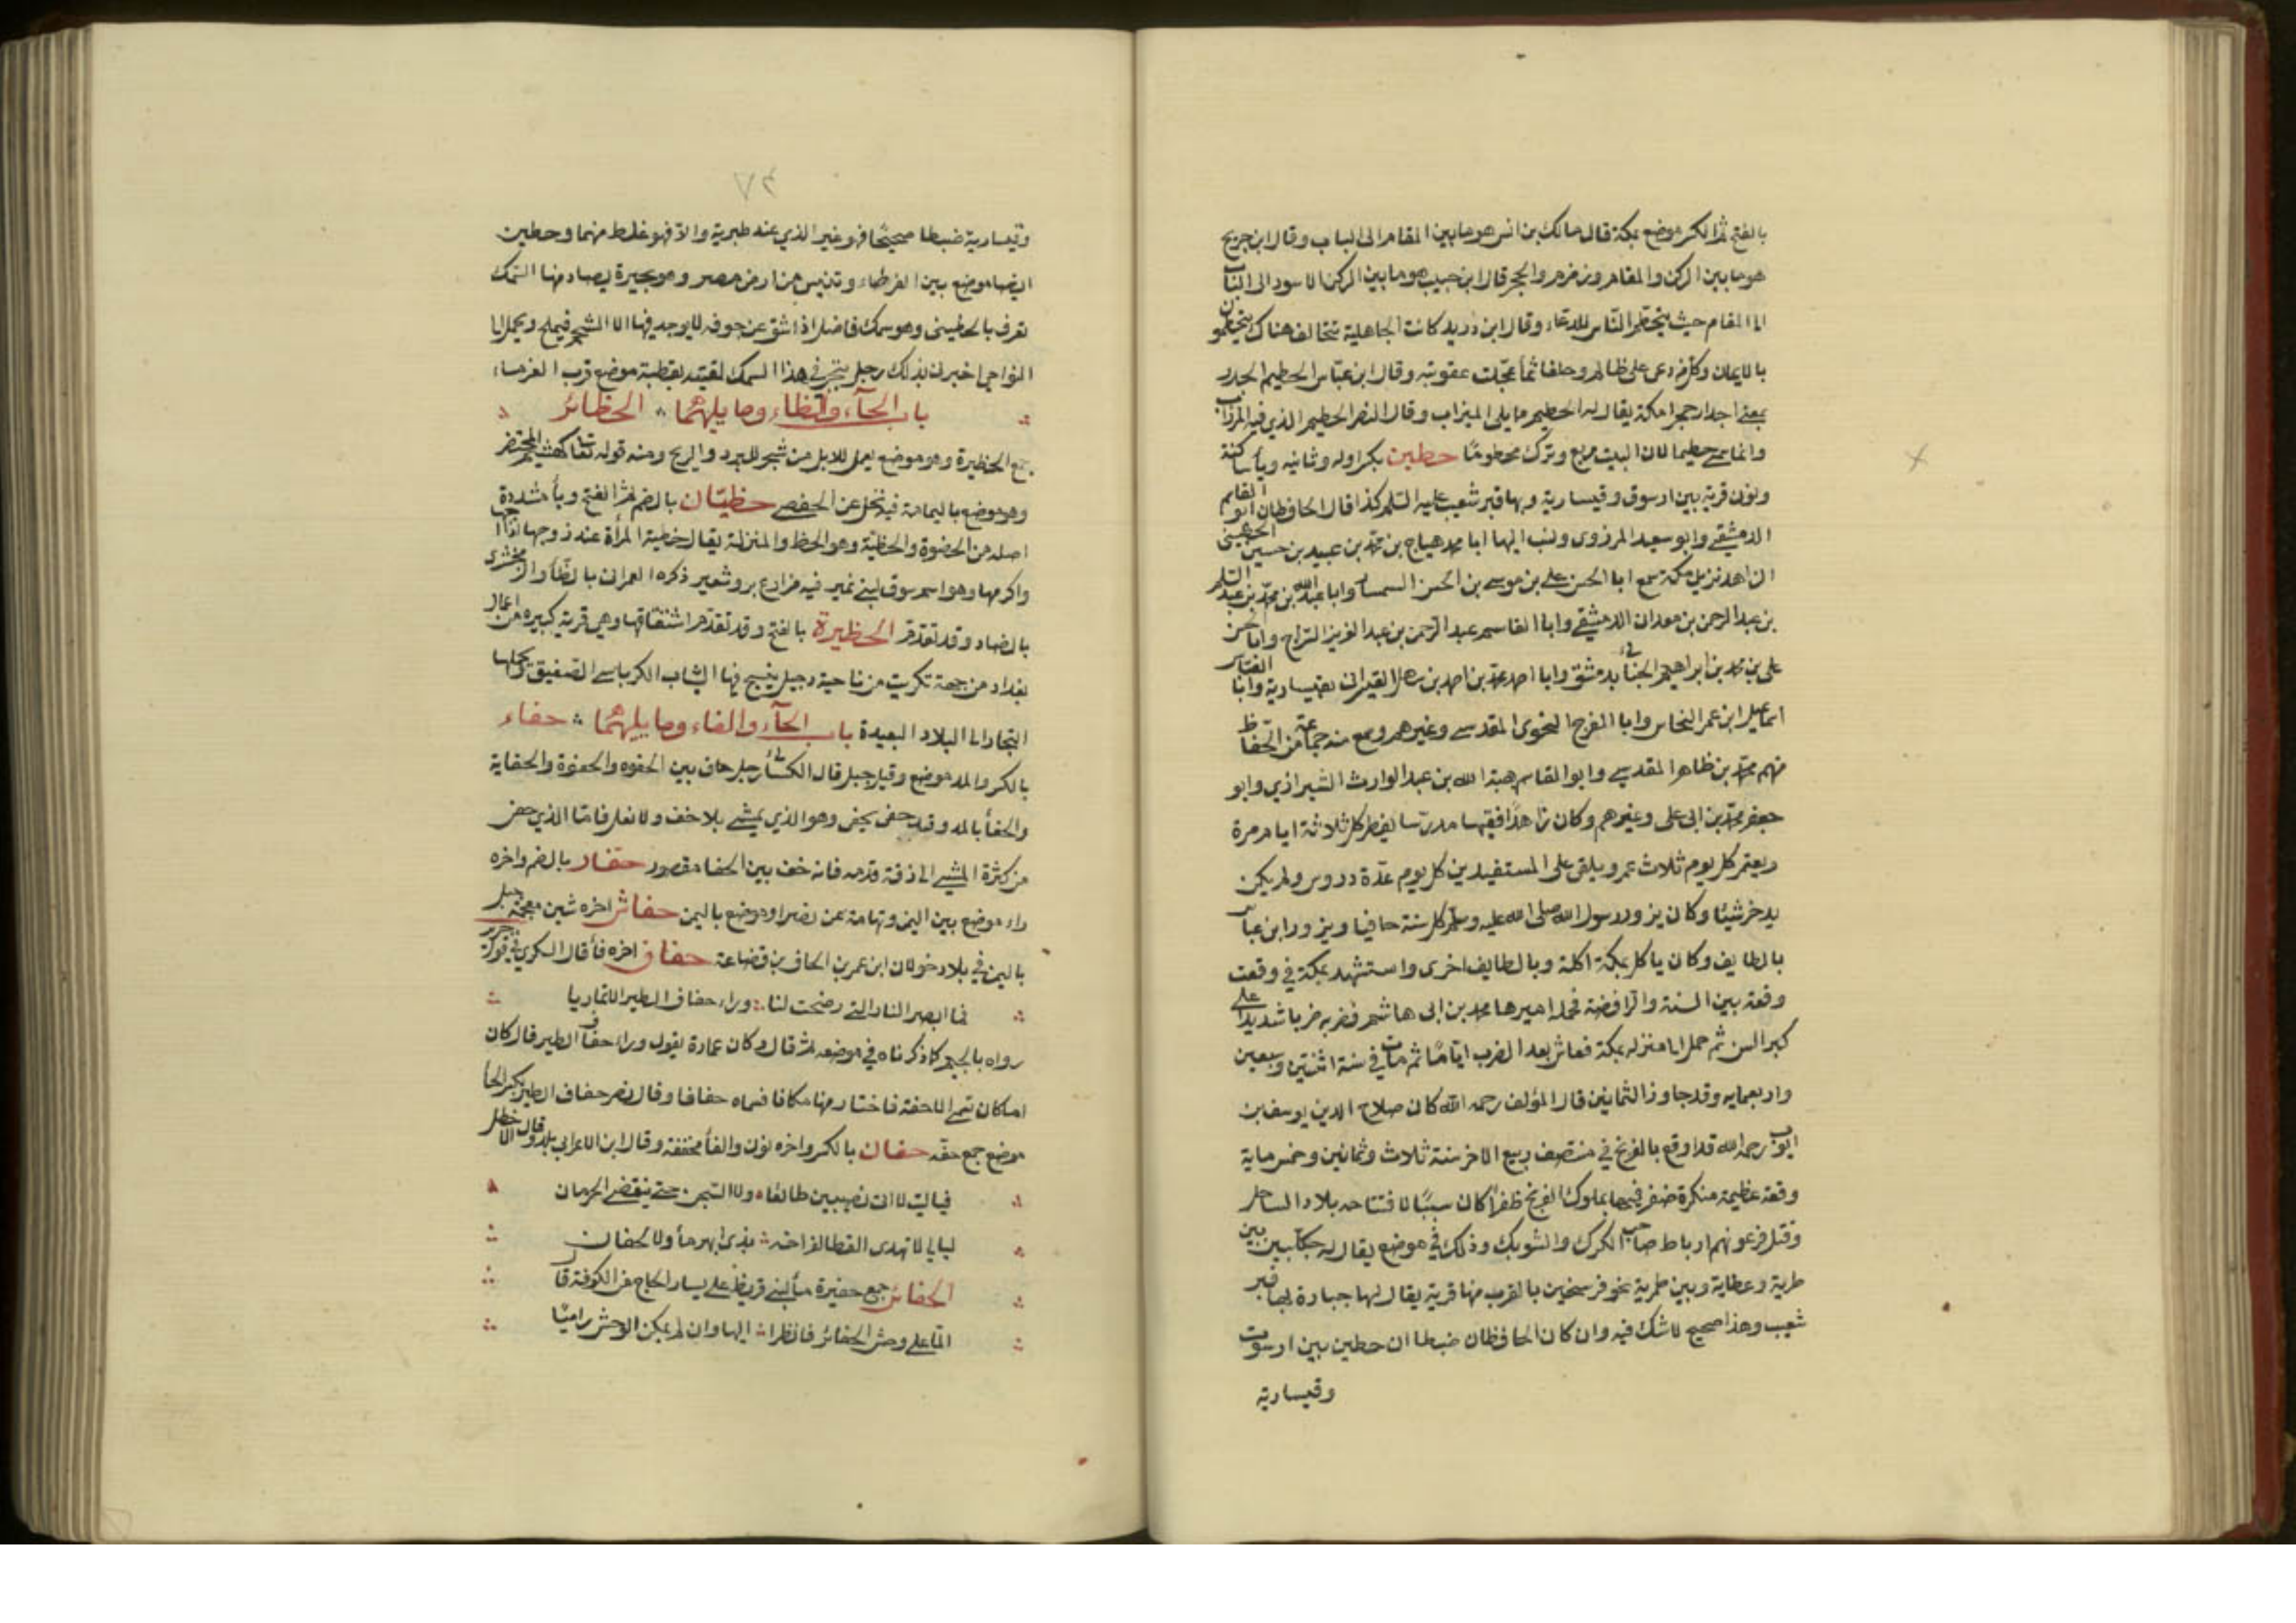 بالفتح ثم الكسر موضع بمكة قال مالك بن انس هو ما بين المقام الى الباب وقال ابن جريج
هو ما بين الركن والمقام وزمزم والحجر قال ابن حبيب هو ما بين الركن الاسود الى الباب
الى المقام حيث يتحطم الناس للدعاء وقال ابن دريد كانت الجاهلية تتحالف هناك يتحطمون
بالايمان وكل من دعى على ظالم وحلف اثما عجلت عقوبته وقال ابن عباس الحطيم الجدر
بمعنى جدار حجر مكة يقال له الحطيم ما يلى الميزاب وقال النضر الحطيم الذي فيه المرزاب
وانما سمي حطيما لان البيت مربع وترك محطوما حطين بكسر اوله وثانيه وياء ساكنة
ونون قرية بين ارسوف وقيسارية وبها قبر شعيب عليه السلم كذا قال الحافظان ابو القاسم
الدمشقي وابو سعيد المرزوى ونسب اليها ابا محمد هياج بن محمد بن عبيد بن حسين الحطيني
الزاهد نزيل مكة سمع ابا الحسن علي بن موسى بن الحسن السمسار وابا عبدالله بن محمد بن عبد السلم
بن عبد الرحمن بن معدان الدمشقي وابا القاسم عبد الرحمن بن عبد العزيز السراج وابا حسن
على بن محمد بن ابراهيم الجنائى بدمشق وابا احمد محمد بن احمد بن سهل القيسراني بقيسارية وابا العباس
اسماعيل ابن عمر النحاس وابا الفرج النحوى المقدسي وغيرهم وسمع منه جماعة من الحفاظ
منهم محمد بن ظاهر المقدسي وابو القاسم هبة الله بن عبد الوارث الشيرازي وابو
جعفر محمد بن ابى على وغيرهم وكان زاهدا فقيها مدرسا يفطر كل ثلاثة ايام مرة
ويعتمر كل يوم ثلاث عمر ويلقى على المستفيدين كل يوم عدة دروس ولم يكن
يدخر شيئا وكان يزور رسول الله صلى الله عليه وسلم كل سنة حافيا ويزور ابن عباس
بالطايف وكان ياكل بمكة اكلة وبالطايف اخرى واستشهد بمكة في وقعت
وقعة بين السنة والرافضة فحمله اميرها محمد بن ابى هاشم فضربه ضربا شديدا على
كبر السن ثم حمل الى منزله بمكة فعاش بعد الضرب اياما ثم مات في سنة اثنتين وسبعين
واربعمايه وقد جاوز الثمانين قال المؤلف رحمه الله كان صلاح الدين يوسف بن
ايوب رحمه الله قد اوقع بالفرنج في منتصف ربيع الاخر سنة ثلاث وثمانين وخمس ماية
وقعة عظيمة منكرة ضفر فيها بملوك الفرنج ظفرا كان سببا لافتتاحه بلاد الساحل
وقتل فرعونهم ارباط صاحب الكرك والشوبك وذلك في موضع يقال له حطين بين
طبرية وعطاية وبين طبرية نحو فرسخين بالقرب منها قرية يقال لها جبارة بها قبر
شعيب وهذا صحيح لا شك فيه وان كان الحافظان ضبطا ان حطين بين ارسوف
وقيسارية
وقيسارية ضبطا صحيحا فهو غير الذي عند طبرية والا فهو غلط منهما وحطين
ايضا موضع بين الفرطاء وتنيس من ارض مصر وهو بحيرة يصاد منها السمك
تعرف بالحطيني وهو سمك فاضل اذا شق عن جوفه لا يوجد فيها الا الشحم فيملح ويحمل الى
النواحي اخبرني بذلك رجل يتجر في هذا السمك لقيته بقطية موضع قرب الفرماء
باب الحآء والظاء وما يليهما الحظائر
جمع الحظيرة وهو موضع يعمل للابل من شجر للبرد والريح ومنه قوله تعالى كهشيم المحتضر
وهو موضع باليمامة فيه نخل عن الحفصي حظيّان بالضم ثم الفتح وياء مشددة
اصله من الحضوة والحظية وهو الحظ والمنزلة يقال حظية المرأة عند زوجها اذا احبها
واكرمها وهو اسم سوق لبني نمير فيه مزارع بر وشعير ذكره العمراني بالظاء والزمخشرى
بالضاد وقد تقدم الحظيرة بالفتح وقد تقدم اشتقاقها وهي قرية كبيره من اعمال
بغداد من جهة تكريت من ناحية دجيل ينسج فيها الثياب الكرباسي الصفيق ويحملها
التجار الى البلاد البعيدة باب الحآء والفاء وما يليهما حفاء
بالكسر والمد موضع وقيل جبل قال الكسائى رجل حاف بين الحفوه والحفوة والحفاية
والحفاء بالمد وقد حفى يحفى وهو الذي يمشي بلا خف ولا نعل فاما الذي حفى
من كثرة المشي الى ذقة قدمه فانه حف بين الحفا مقصور حفار بالضم واخره
راء موضع بين اليمن وتهامة عن نصر او موضع باليمن حفاش اخره شين معجمة جبل
باليمن في بلاد خولان ابن عمر بن الحاف بن قضاعة حفاف اخره فاء قال السكري في قول جرير
فما ابصر النار التي وضحت لنا وراء حفاف الطير الا تماريا
رواه بالجيم كما ذكرناه في موضعه ثم قال وكان عمارة يقول وراء حفاف الطير قال كان
اماكن تسمى الاحفة فاختار منها مكانا فسماه حفافا وقال نصر حفاف الطير بكسر الحاء
موضع جمع حفه حفان بالكسر واخره نون والفاء مخففة وقال ابن الاعرابى بلد وقال الاخطل
فياليت لاآتى نصيبين طائعا ولا السجن حتى ينقضي الحرمان
ليالي لا تهدى القطا لفراخه بذى ابهر ماء ولا لحفان
الحفائر جمع حفيرة ماء لبني قريظ على يسار الحاج من الكوفة قال
الما على وحش الحفائر فانظرا اليها وان لم يمكن الوحش راميا